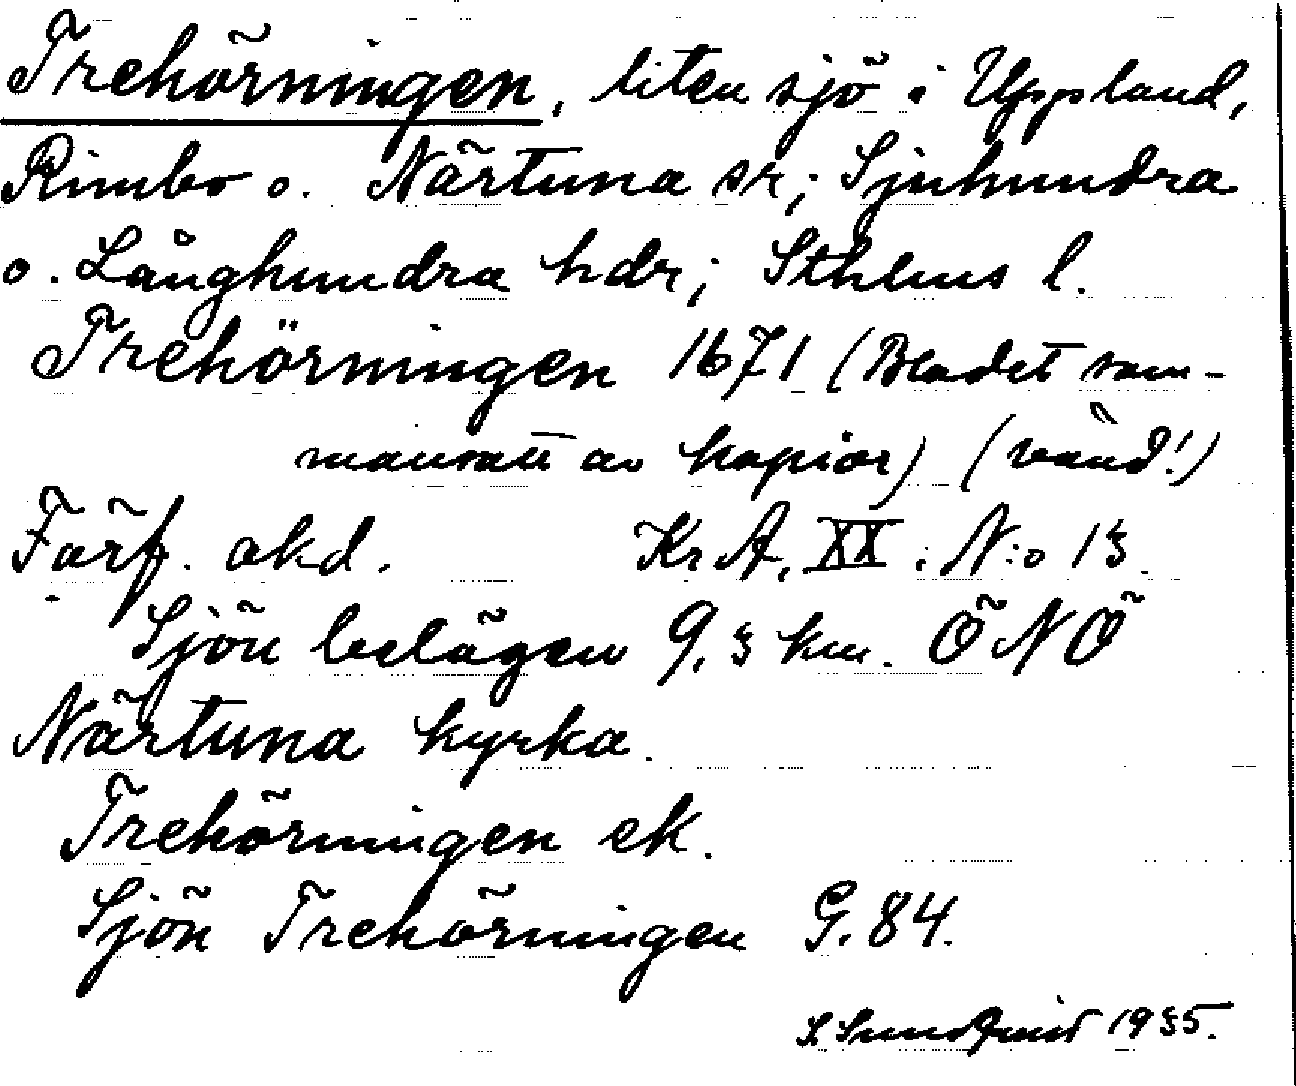 Trehörningen, liten sjö i Uppland,
Rimbo o. Närtuna sr; Sjuhundra
o. Långhundra hdr; Sthlms l.
Trehörningen 1671 (Bladet sam-
mansatt av kopior) (vänd!)
Förf. okd. Kr A. XX. N:o 13.
Sjön belägen 9,3 km. ÖNÖ
Närtuna kyrka.
Trehörningen ek.
Sjön Trehörningen G. 84.
S. Sundquist 1935.